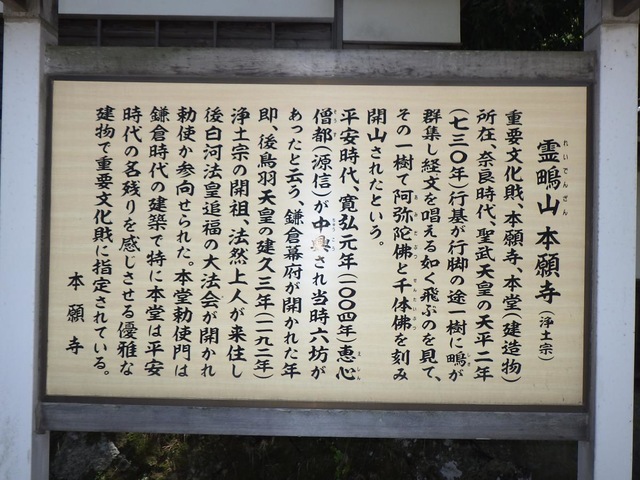 霊鴫山 本願寺(浄土宗)
れいでんざん
重要文化財、本願寺、本堂(建造物)
所在、奈良時代、聖武天皇の天平二年
(七三〇年)行基が行脚の途一樹に鴫が
群集し経文を唱える如く飛ぶのを見て、
その一樹て阿弥陀佛と千体佛を刻み
開山されたという。
平安時代、寛弘元年(一〇〇四年)恵心
僧都(源信)が中興され当時六坊が
あったと云う、鎌倉幕府が開かれた年
即、後鳥羽天皇の建久三年(一一九二年)
浄土宗の開祖、法然上人が来住し
後白河法皇追福の大法会が開かれ
勅使か参向せられた。本堂勅使門は
鎌倉時代の建築で特に本堂は平安
時代の名残りを感じさせる優雅な
建物で重要文化財に指定されている。
本願寺